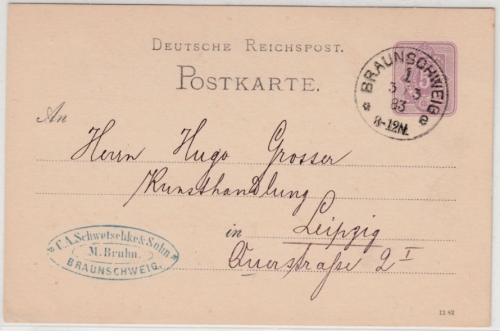 DEUTSCHE REICHSPOST.
POSTKARTE.
BRAUNSCHWEIG
1
3 3
83
8-12N.
An
Herrn Hugo Grosser
Kunsthandlung
in Leipzig
Querstraße 2 I
C.A. Schwetschke & Sohn
M. Bruhn.
BRAUNSCHWEIG.
12 82